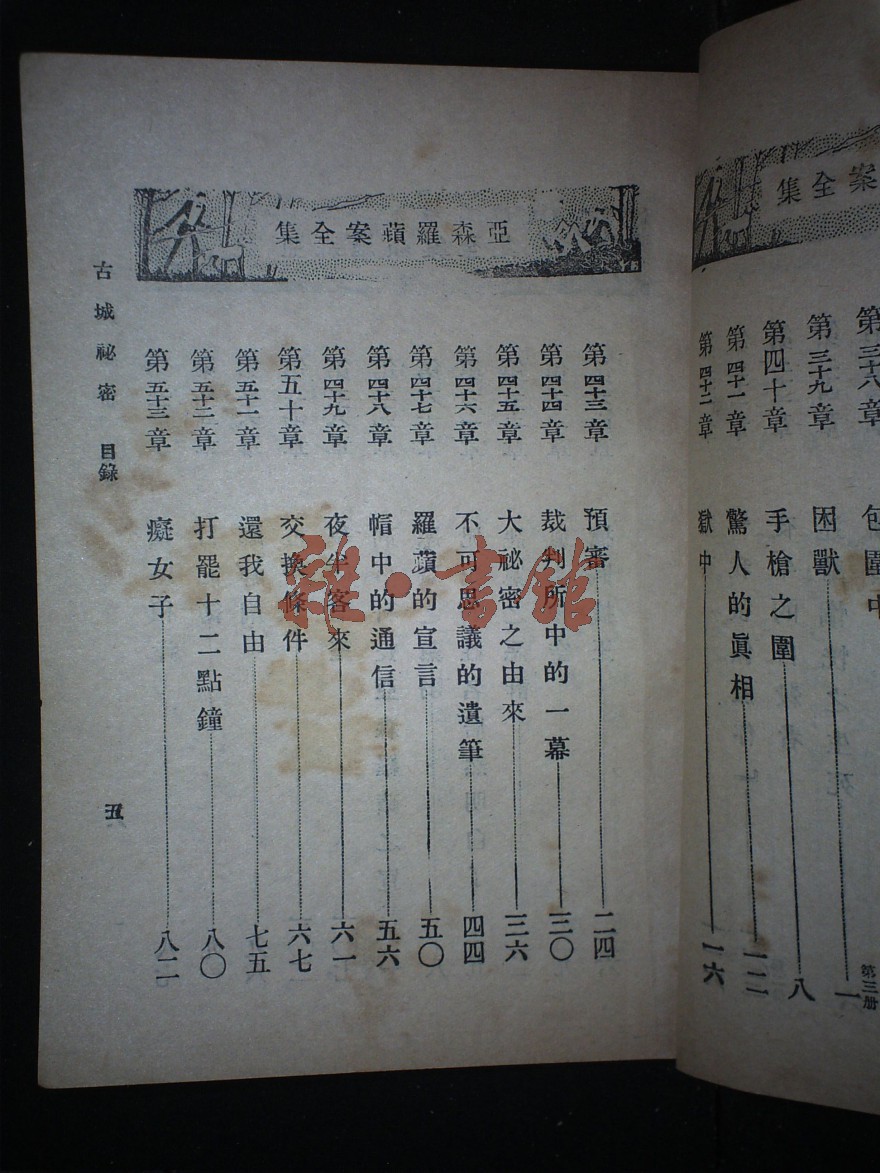 案全集
第三十八章 包圍中
第三册
第三十九章 困獸 一
第四十章 手槍之圍 八
第四十一章 驚人的眞相 一二
第四十二章 獄中 一六
亞森羅蘋案全集
第四十三章 預審 二四
第四十四章 裁判所中的一幕 三〇
第四十五章 大祕密之由來 三六
第四十六章 不可思議的遺筆 四四
第四十七章 羅蘋的宣言 五〇
第四十八章 帽中的通信 五六
第四十九章 夜半客來 六一
第五十章 交換條件 六七
第五十一章 還我自由 七五
第五十二章 打罷十二點鐘 八〇
第五十三章 癡女子 八二
古城祕密 目錄 五
雜·書館